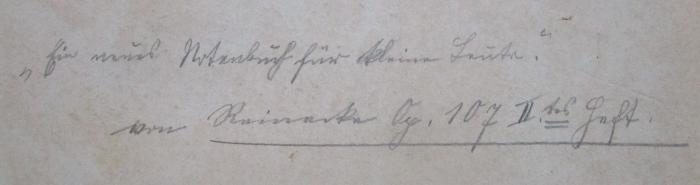 „Ein neues Notenbuch für kleine Leute.“
von Reinecke Op. 107 II.tes Heft.